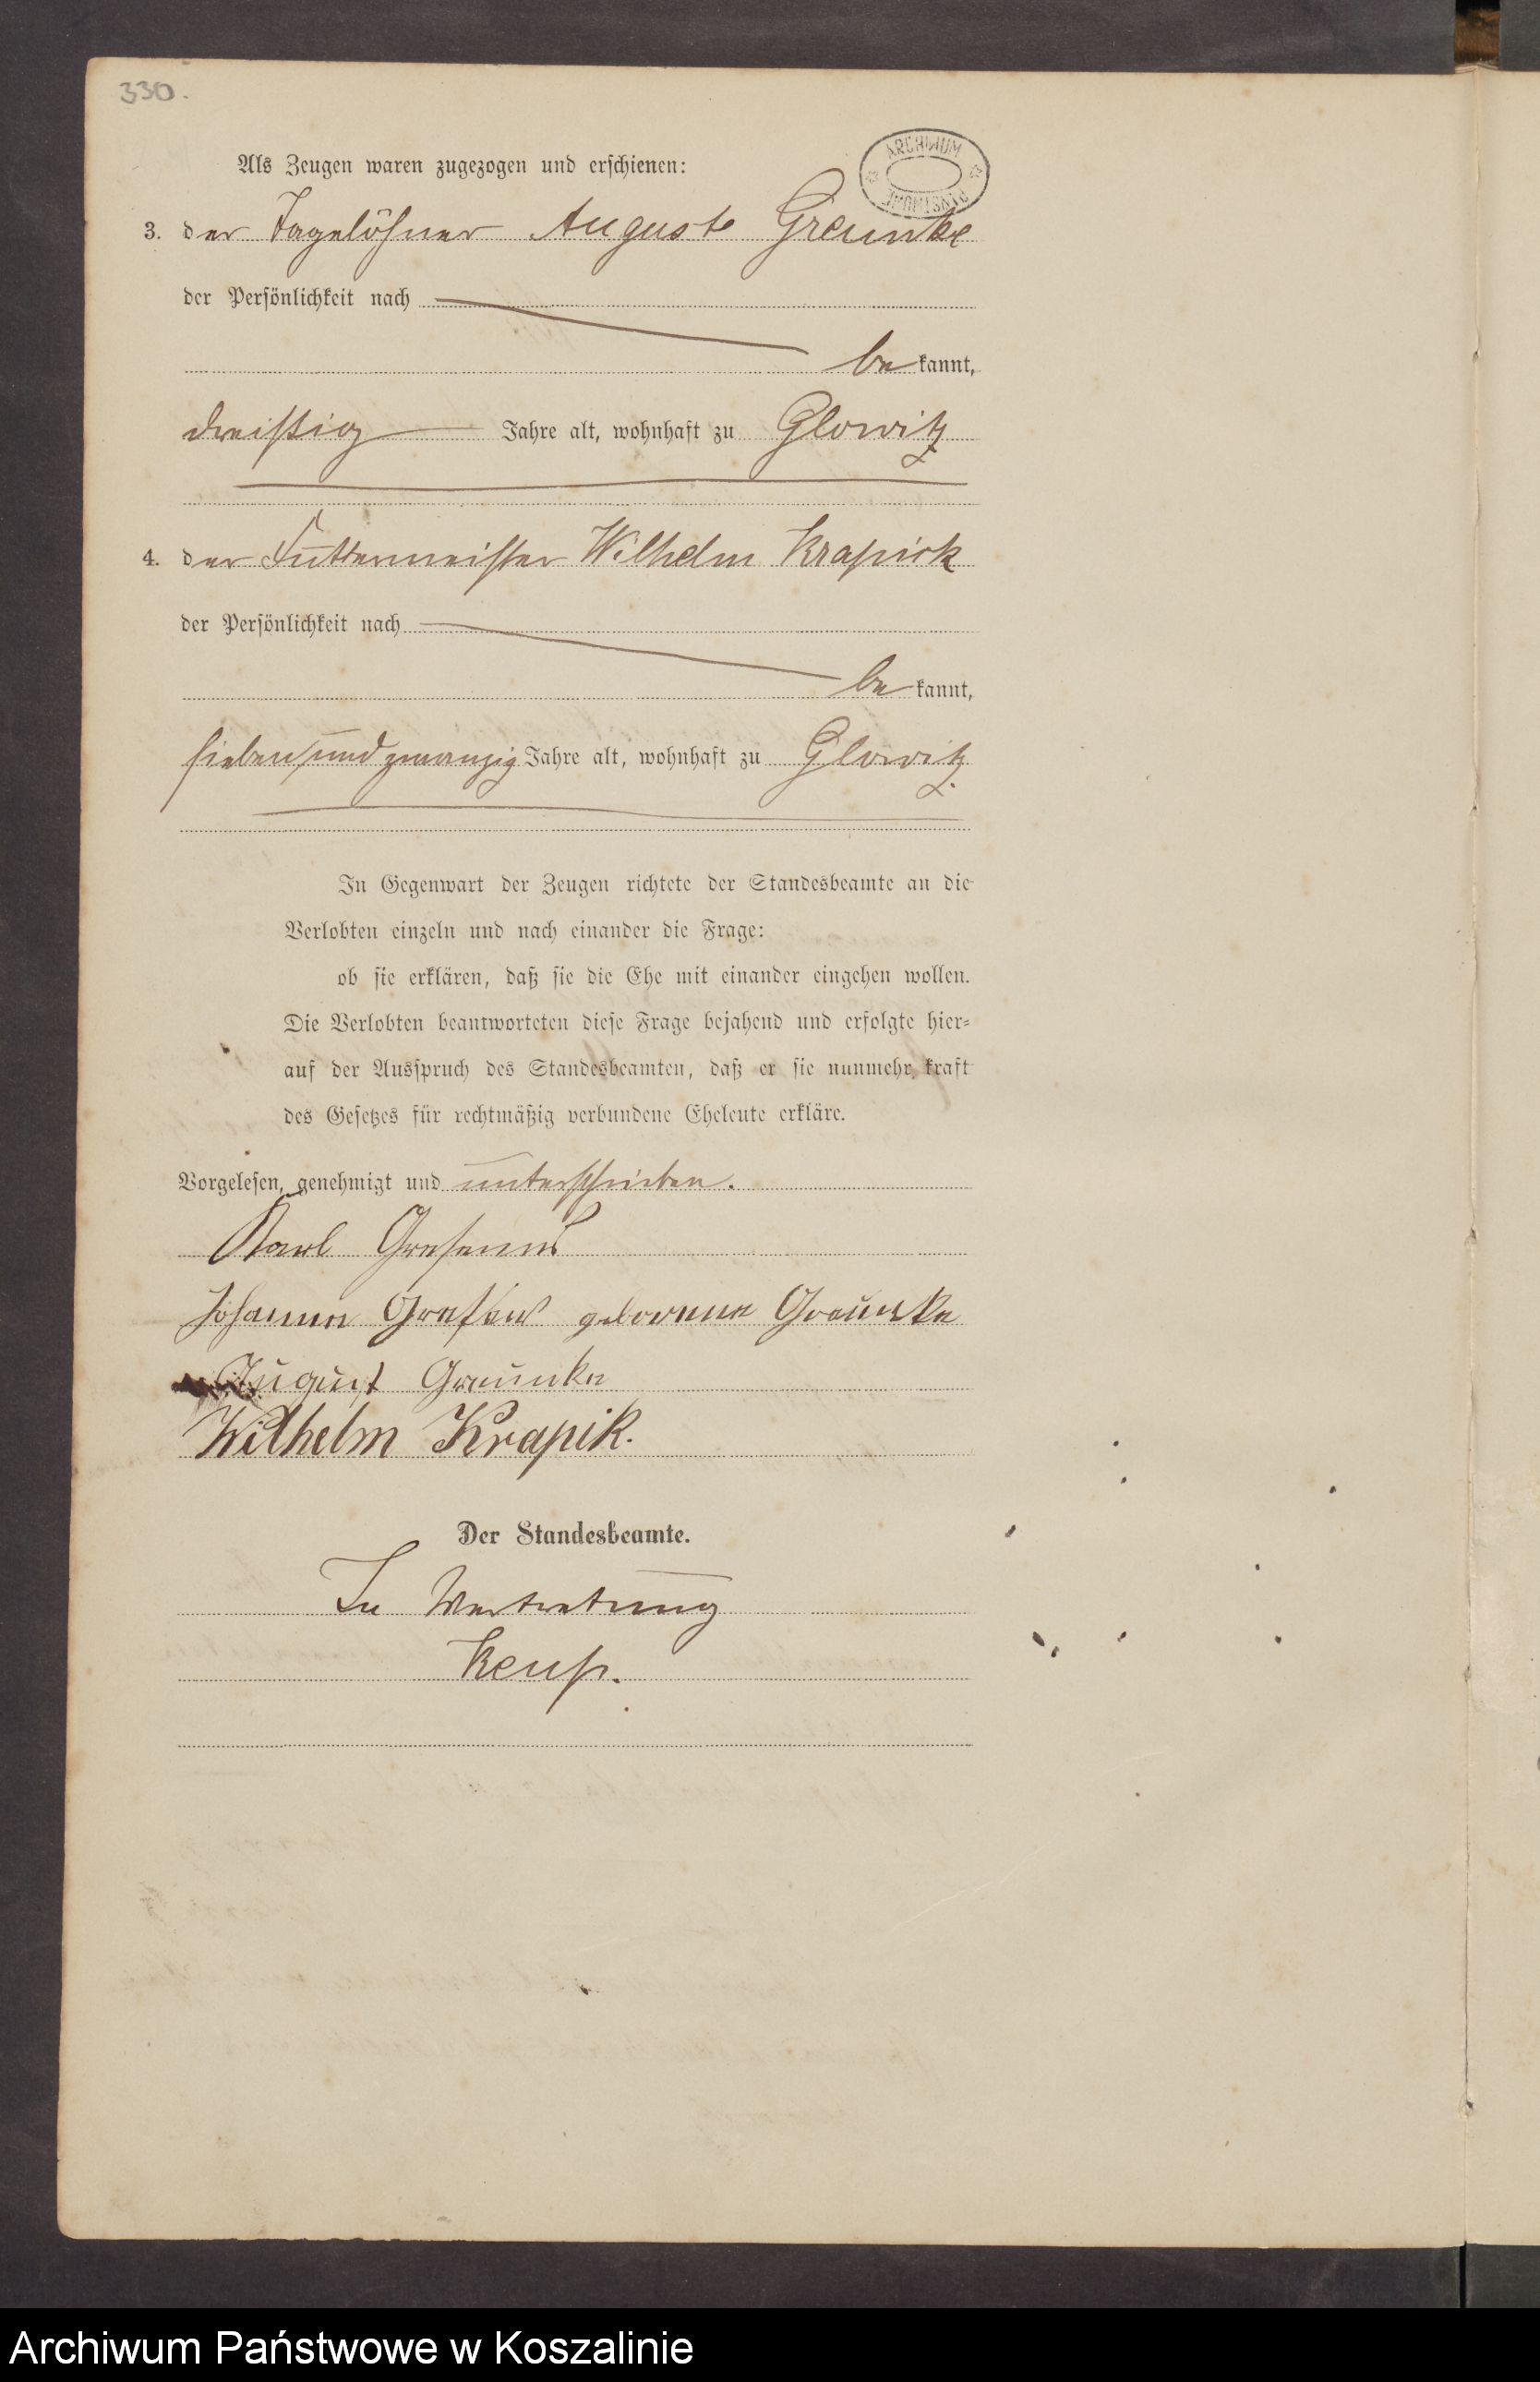 330.
ARCHIWUM PAŃSTWOWE
Als Zeugen waren zugezogen und erschienen:
3. der Tagelöhner August Greunke
der Persönlichkeit nach
bekannt,
dreißig Jahre alt, wohnhaft zu Glowitz
4. der Futtermeister Wilhelm Krapick
der Persönlichkeit nach
bekannt,
sieben und zwanzig Jahre alt, wohnhaft zu Glowitz.
In Gegenwart der Zeugen richtete der Standesbeamte an die
Verlobten einzeln und nach einander die Frage:
ob sie erklären, daß sie die Ehe mit einander eingehen wollen.
Die Verlobten beantworteten diese Frage bejahend und erfolgte hier-
auf der Ausspruch des Standesbeamten, daß er sie nunmehr kraft
des Gesetzes für rechtmäßig verbundene Eheleute erkläre.
Vorgelesen, genehmigt und unterschrieben.
Karl
Johanne geborene Graunke
August Graunke
Wilhelm Krapik.
Der Standesbeamte.
In Vertretung
Archiwum Państwowe w Koszalinie